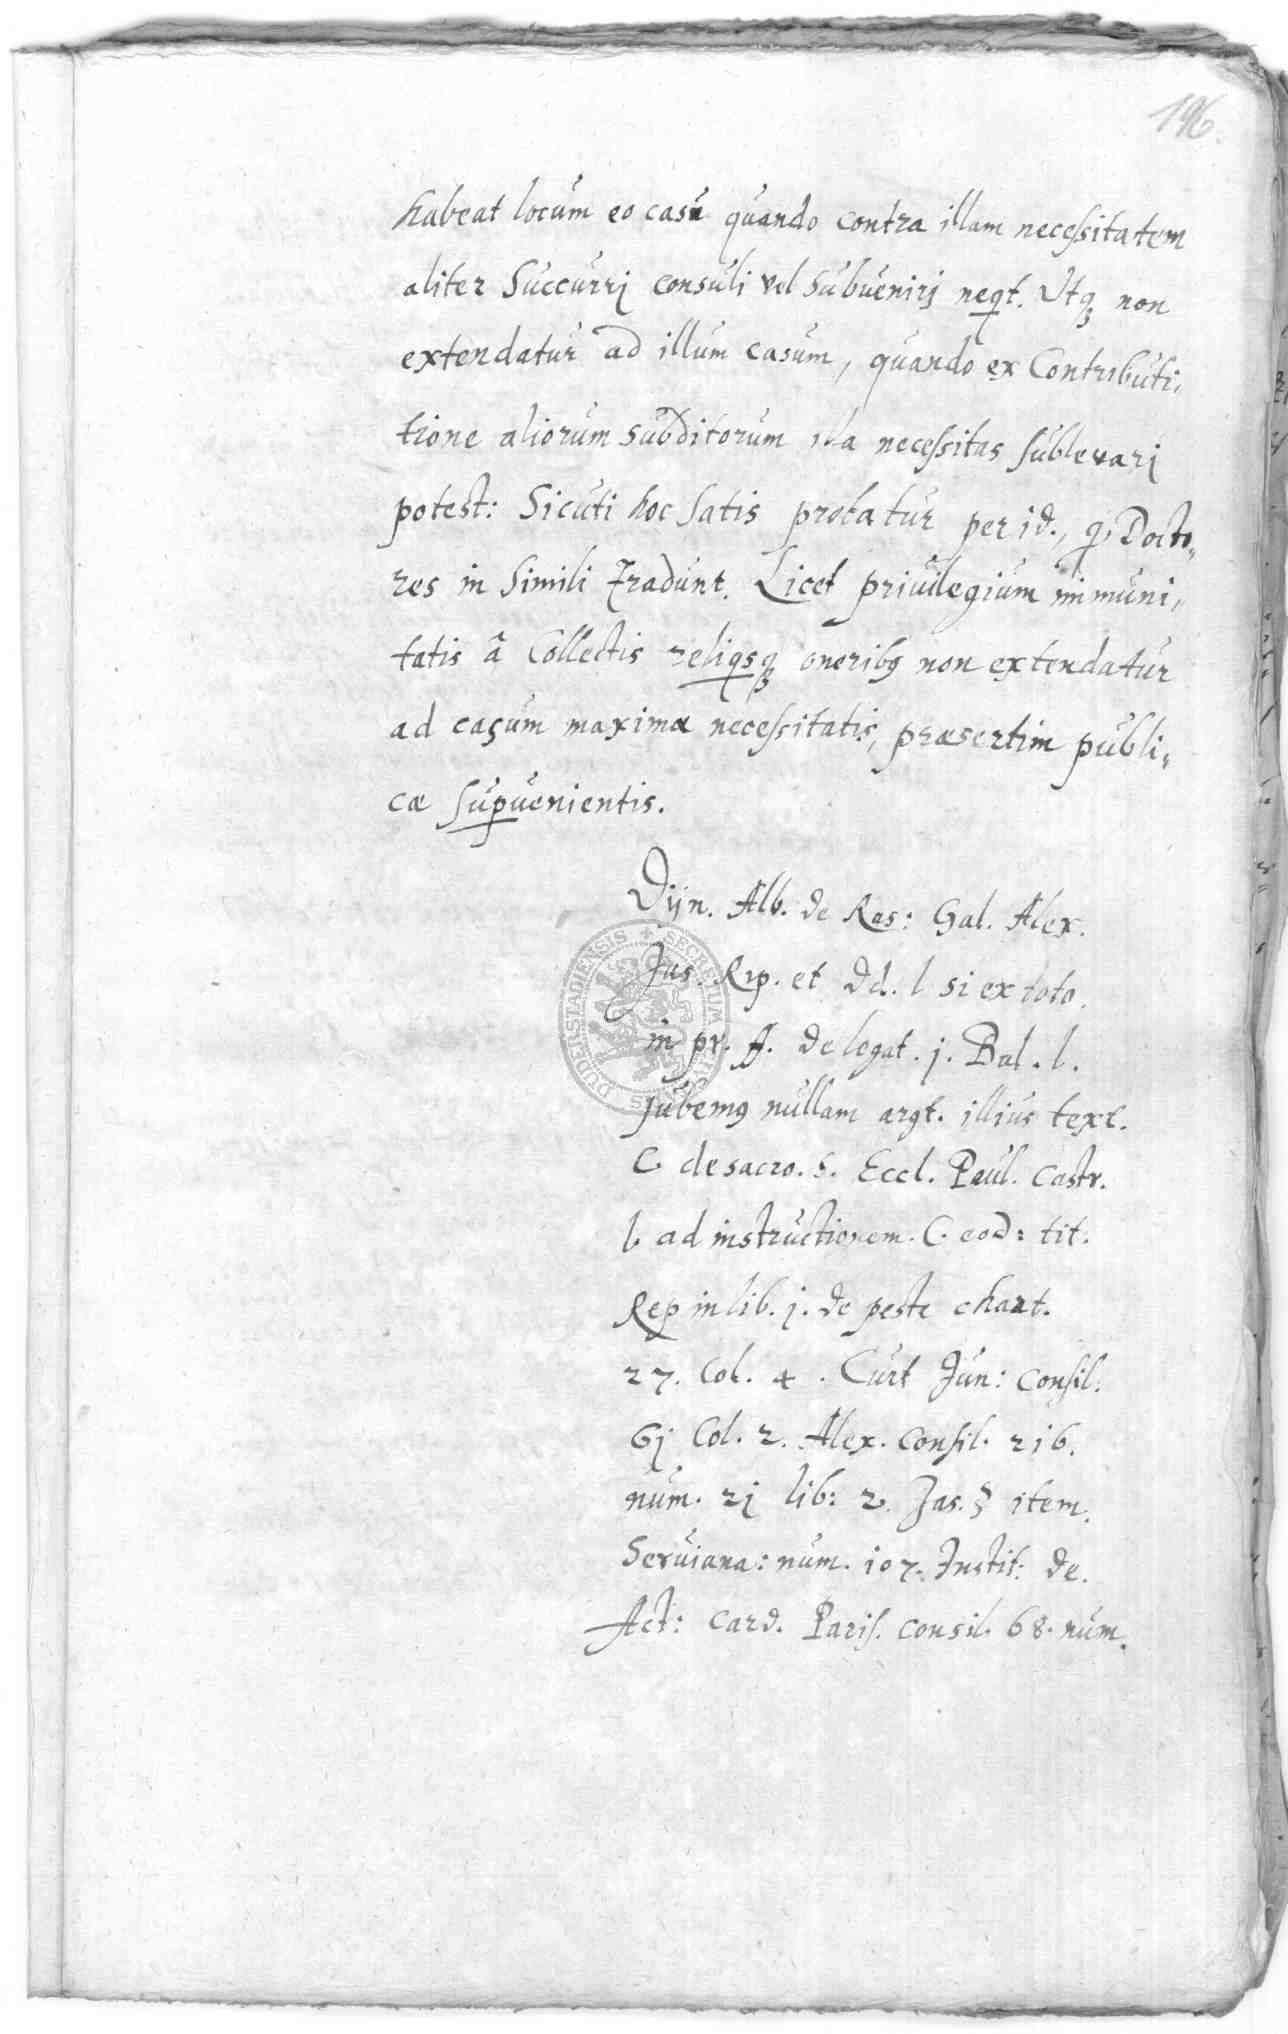 196.
habeat locum eo casu quando contra illam necessitatem
aliter Succurrj consuli vel Subuenirj neqt. Vtq non
extendatur ad illum casum, quando ex Contributi,
tione aliorum Subditorum illa necessitas sublevarj
potest: Sicuti hoc Satis probatur per id., q Docto„
res in Simili Tradunt. Licet priuilegium immuni„
tatis â Collectis reliqsq oneribq non extendatur
ad casum maximæ necessitatis, præsertim publi„
cæ Supuenientis.
Dijn. Alb. de Ros: Gal. Alex.
Jas. Rip. et Dd. l si ex toto.
in pr. ff. de legat. j. Bal. l.
Jubemq nullam argt. illius text.
C de sacro. S. Eccl. Paul. Castr.
l. ad instructionem. C. eod: tit:
Rep in lib. j. de peste chart.
27. Col. 4. Curt Jun: Consil:
6j Col. 2. Alex. Consil. 216.
num. 2j lib: 2. Jas. § item.
Seruiana: num. 107. Instit: de.
Act: Card. Paris. consil. 68. num.
SECRETUM
DUDERSTADIENSIS